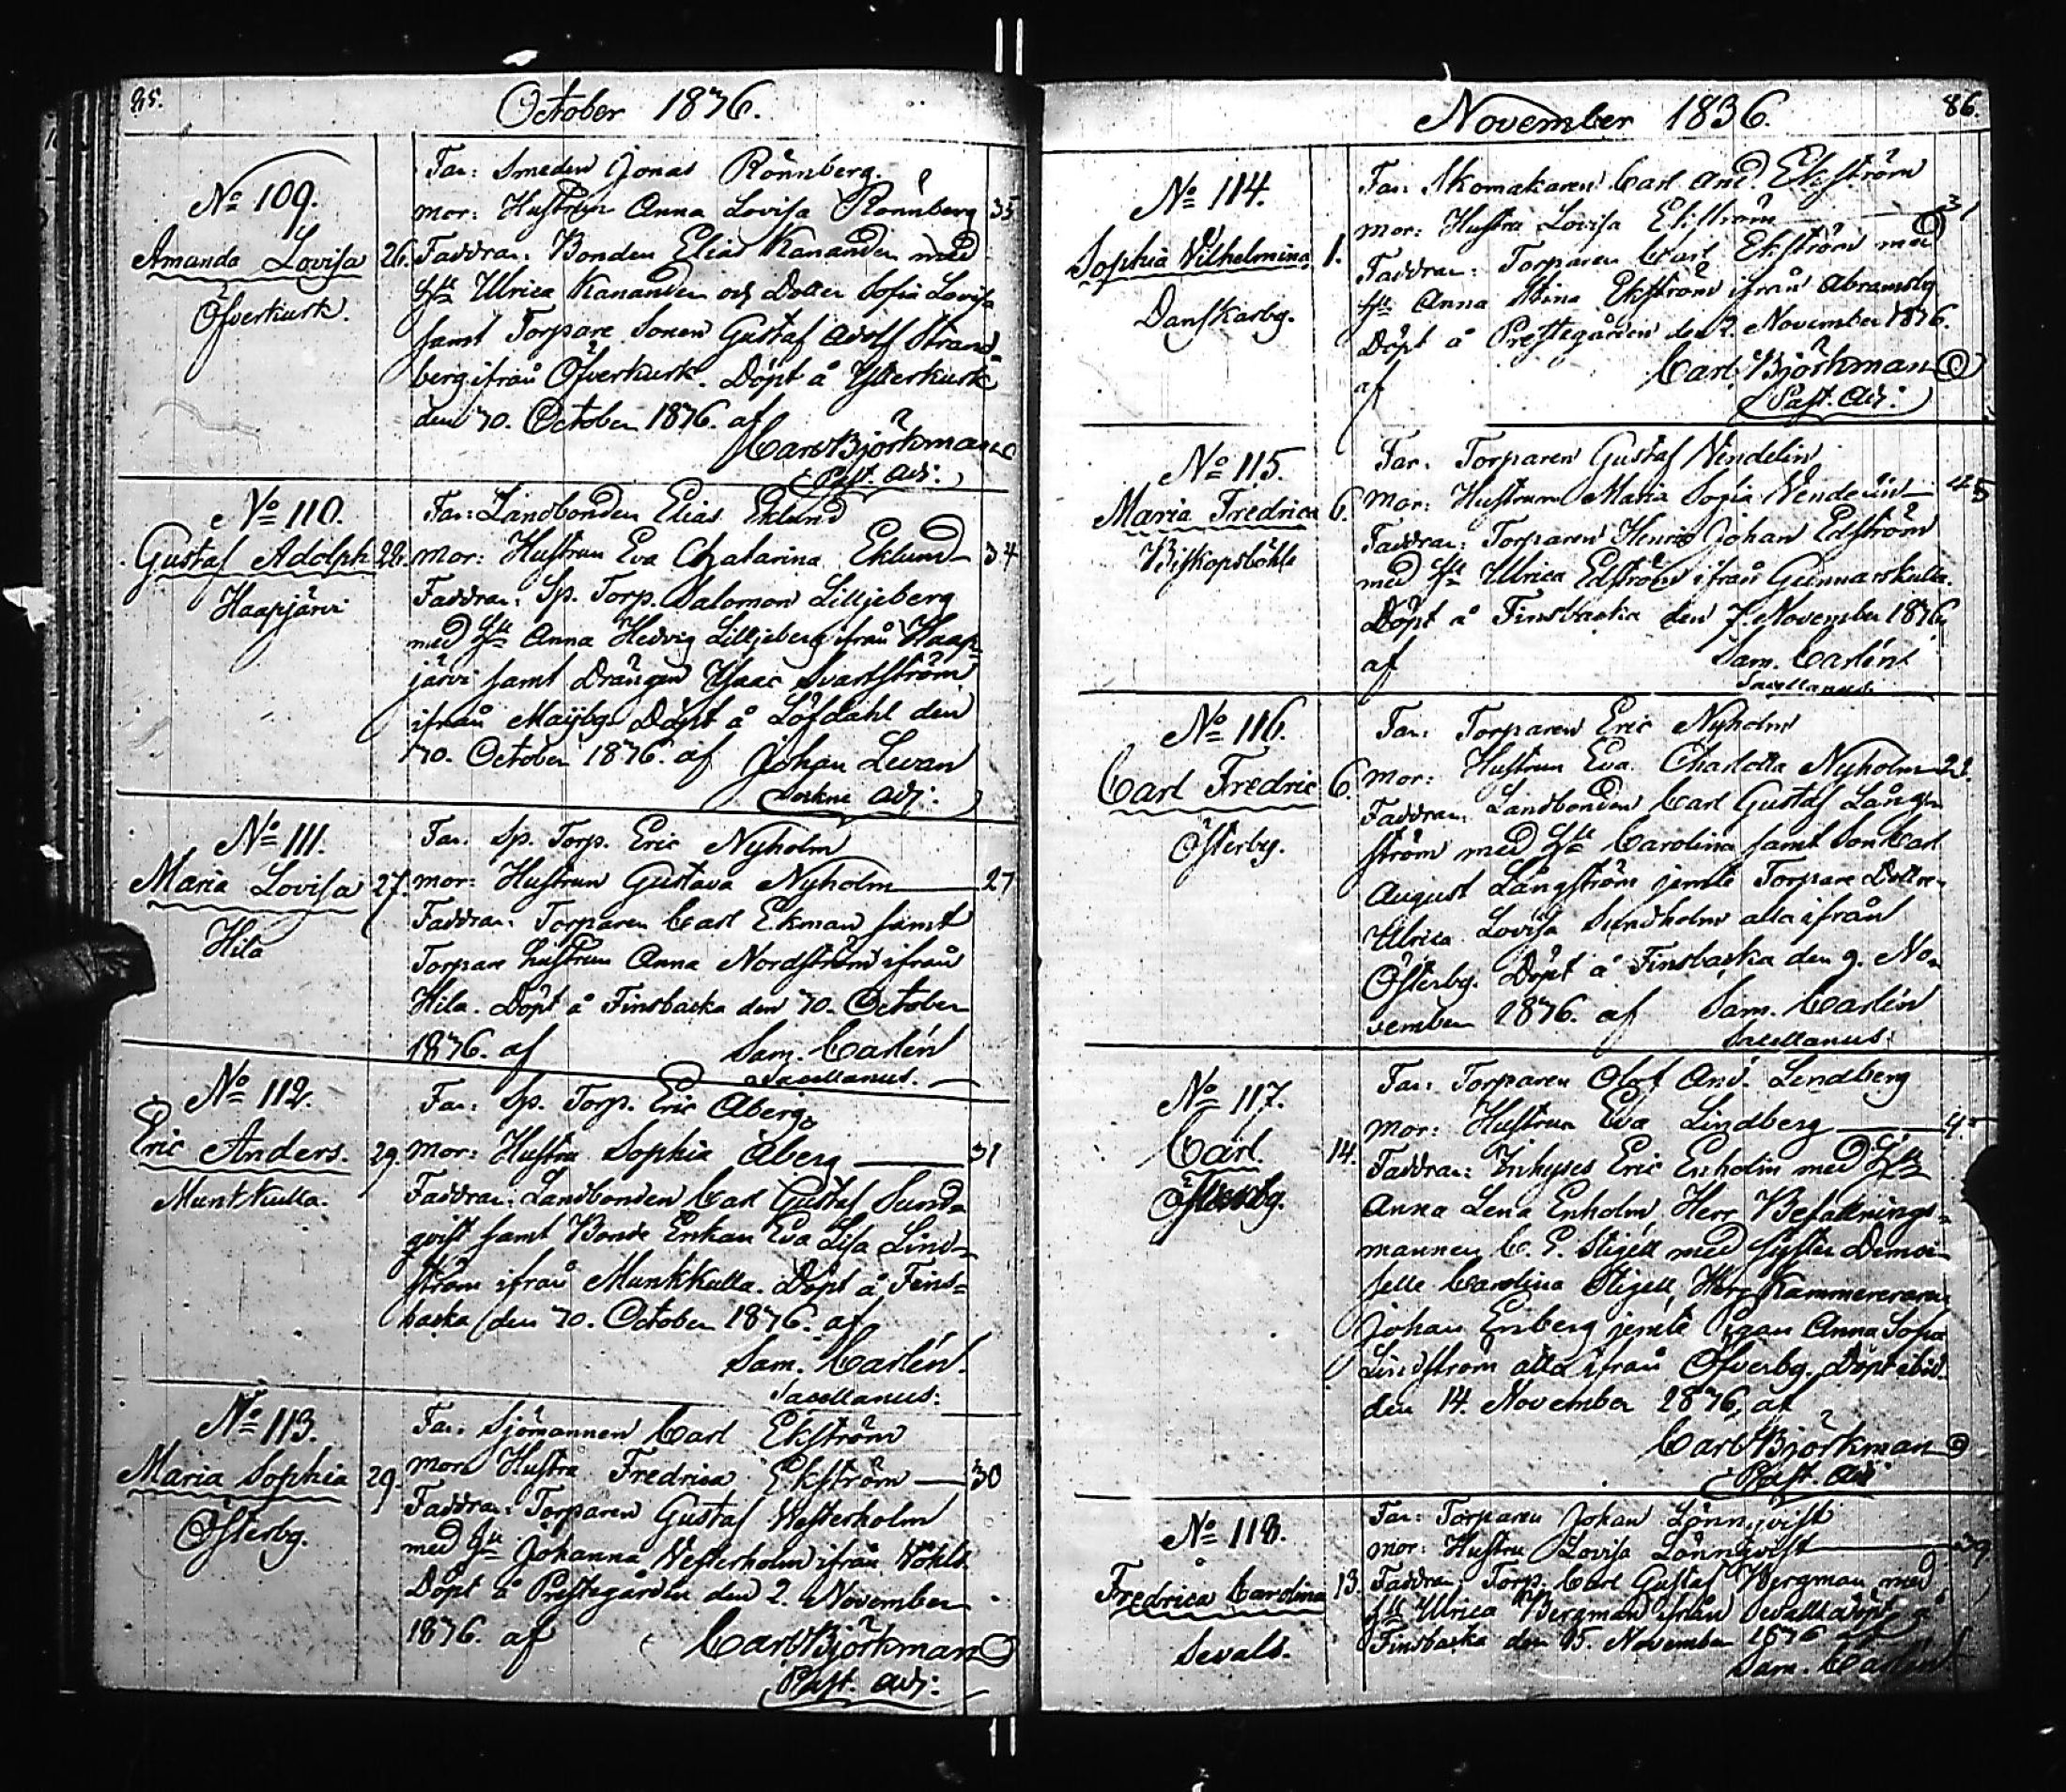 85.
October 1836.
No 109.
Amanda Lovisa 26.
Öfverkurk.
Far: Smeden Jonas Rönnberg.
mor: Hustrun Anna Lovisa Rönnberg 35
Faddrar: Bonden Elias Kanander med
Hu Ulrica Kanander och Dotter Sofia Lovisa
samt Torpare Sonen Gustaf Adolf Strand=
berg ifrån Öfverkurk. Döpt å Ytterkurk
den 30. October 1836. af
Carl Björkman
Past. Adj:
No 110.
Gustaf Adolph 22.
Haapjärvi
Far: Landbonden Elias Eklund
mor: Hustrun Eva Chatarina Eklund 34
Faddrar: Sp. Torp. Salomon Lilljeberg
med Hu Anna Hedvig Lilljeberg ifrån Haap=
järvi samt Drängen Isaac Svartström
ifrån Majbg. Döpt å Löfdahl den
30. October 1836. af Johan Levan
Sockne Adj:
No 111.
Maria Lovisa 27.
Hila
Far: Sp. Torp. Eric Nyholm
mor: Hustrun Gustava Nyholm 27
Faddrar: Torparen Carl Ekman samt
Torpare hustrun Anna Nordström ifrån
Hila. Döpt å Finsbacka den 30. October
1836. af Sam. Carlén
Sacellanus.
No 112.
Eric Anders. 29.
Munkkulla.
Far: Sp. Torp. Eric Åberg
mor: Hustru Sophia Åberg 31
Faddrar: Landbonden Carl Gustaf Sund=
qvist samt Bonde Enkan Eva Lisa Lind=
ström ifrån Munkkulla. Döpt å Fins=
backa den 30. October 1836. af
Sam. Carlén.
Sacellanus:
No 113.
Maria Sophia 29.
Österbg.
Far: Sjömannen Carl Ekström
mor: Hustru Fredrica Ekström 30
Faddrar: Torparen Gustaf Westerholm
med Hu Johanna Westerholm ifrån Wohls
Döpt å Prestegården den 2. November
1836. af Carl Björkman
Past. Adj:
November 1836.
86.
No 114.
Sophia Vilhelmina 1.
Danskarbg.
Far: Skomakaren Carl And. Ekström
mor: Hustru Lovisa Ekström 31
Faddrar: Torparen Carl Ekström med
Hu Anna Stina Ekström ifrån Abramsbg
Döpt å Prestegården den 2. November 1836.
af Carl Björkman
Past. Adj:
No 115.
Maria Fredrica 6.
Biskopsböhle
Far: Torparen Gustaf Vendelin
mor: Hustrun Maria Sofia Vendelin 45
Faddrar: Torparen Henric Johan Edström
med Hu Ulrica Edström ifrån Gunnarskulla.
Döpt å Finsbacka den 7. November 1836
af Sam. Carlén
Sacellanus.
No 116.
Carl Fredric 6.
Österbg.
Far: Torparen Eric Nyholm
mor: Hustrun Eva Charlotta Nyholm 22.
Faddrar: Landbonden Carl Gustaf Lång=
ström med Hu Carolina samt Son Carl
August Långström jemte Torpare Dottren
Ulrica Lovisa Sundholm alla ifrån
Österbg. Döpt å Finsbacka den 9. No=
vember 1836. af Sam. Carlén
Sacellanus.
No 117.
Carl. 14.
Far: Torparen Olof And. Lindberg
mor: Hustrun Eva Lindberg
Faddrar: Inhyses Eric Enholm med Hu
Anna Lena Enholm, Herr Befallnings=
mannen C. E. Stigell med syster Demoi=
selle Carolina Stigell, Herr Kammereraren
Johan Enberg jemte Pigan Anna Sofia
Lindström alla ifrån Öfverbg. Döpt ibid.
den 14. November 1836, af
Carl Björkman
Past. Adj
No 118.
Fredrica Carolina 13.
Sevals.
Far: Torparen Johan Lönnqvist
mor: Hustru Lovisa Lönnqvist 39
Faddrar: Torp. Carl Gustaf Bergman med
Hu Ulrica Bergman ifrån Sevals Döpt å
Finsbacka den 15. November 1836 af
Sam. Carlén